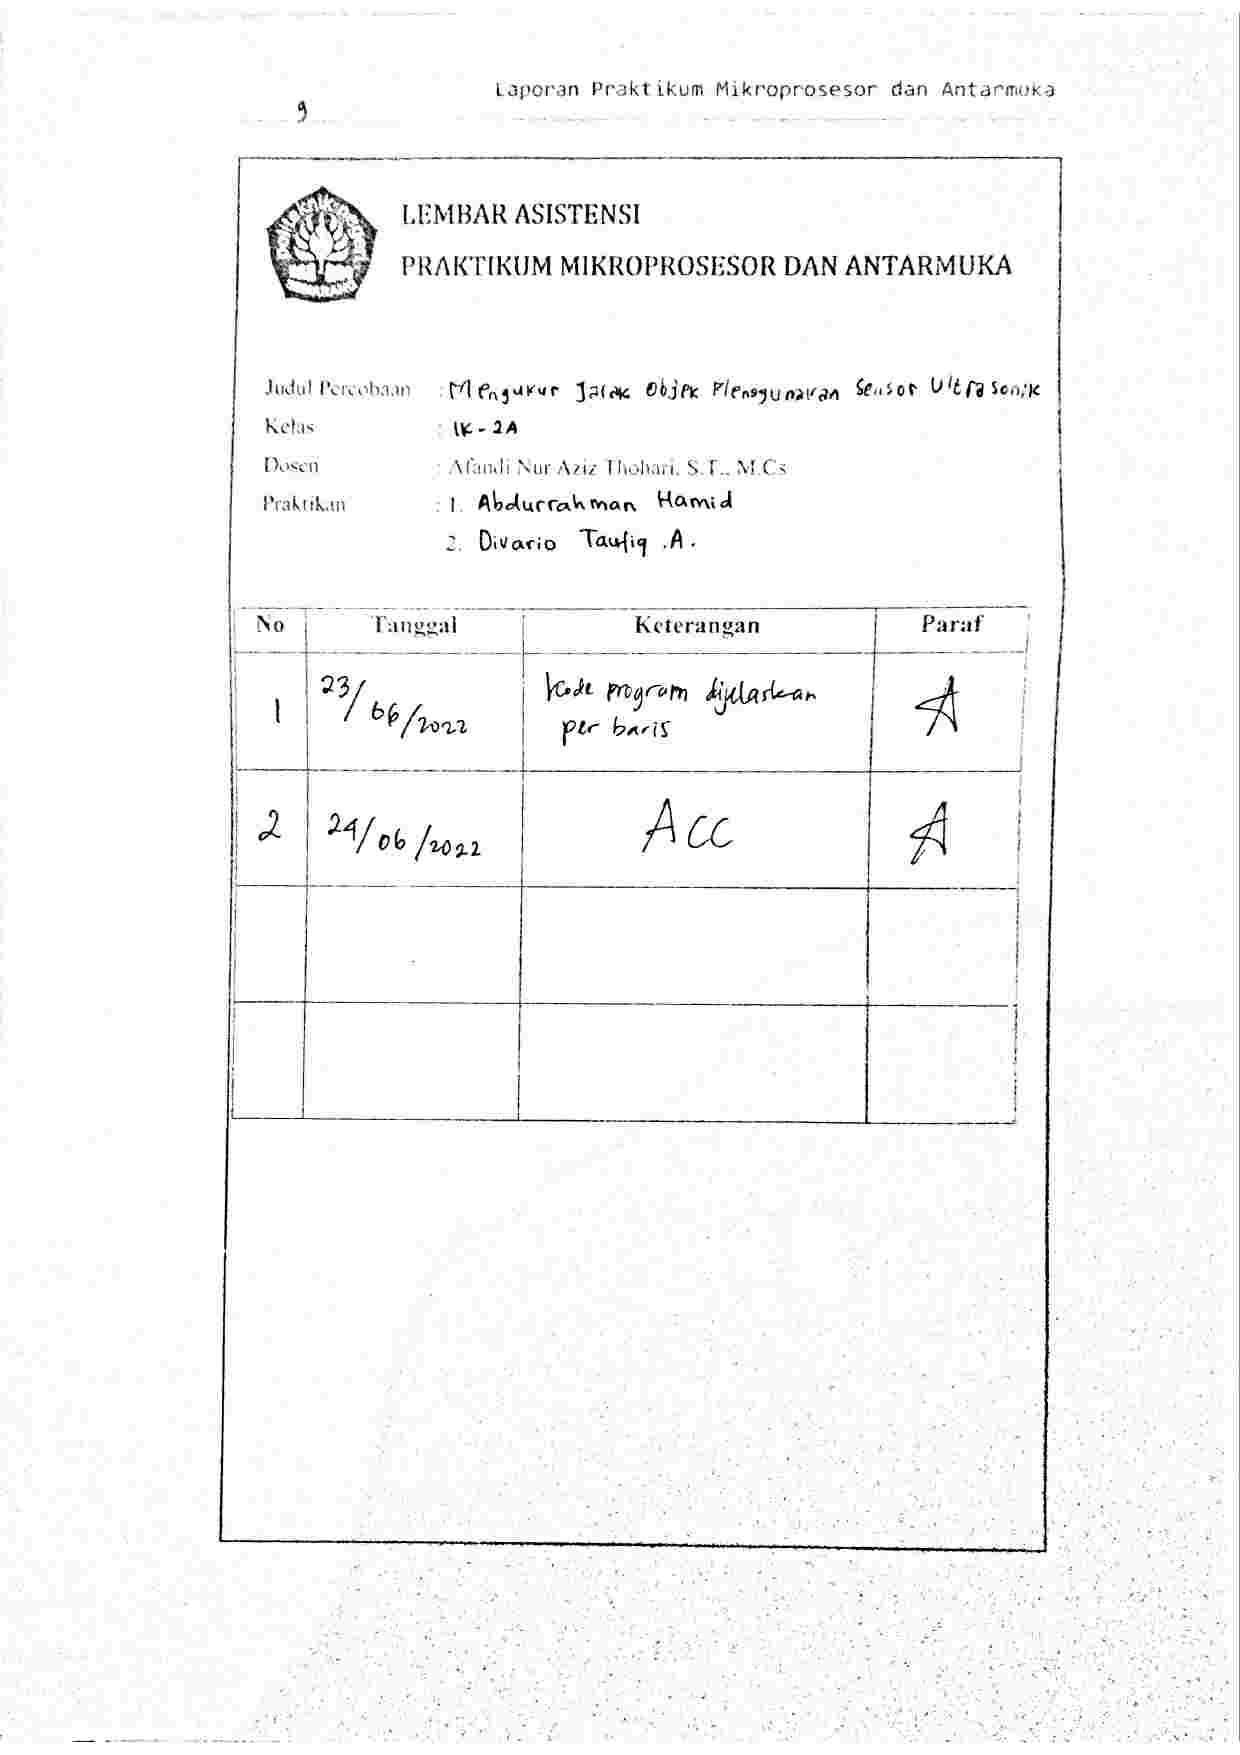 Laporan Praktikum Mikroprosesor dan Antarmuka
9
LEMBAR ASISTENSI
PRAKTIKUM MIKROPROSESOR DAN ANTARMUKA
Judul Percobaan : Mengukur Jarak Objek Menggunakan Sensor Ultrasonik
Kelas : IK-2A
Dosen : Afandi Nur Aziz Thohari, S.T., M.Cs
Praktikan : 1. Abdurrahman Hamid
2. Divario Taufiq .A.
No Tanggal Keterangan Paraf
1 23/06/2022 Kode program dijelaskan
per baris
2 24/06/2022 ACC